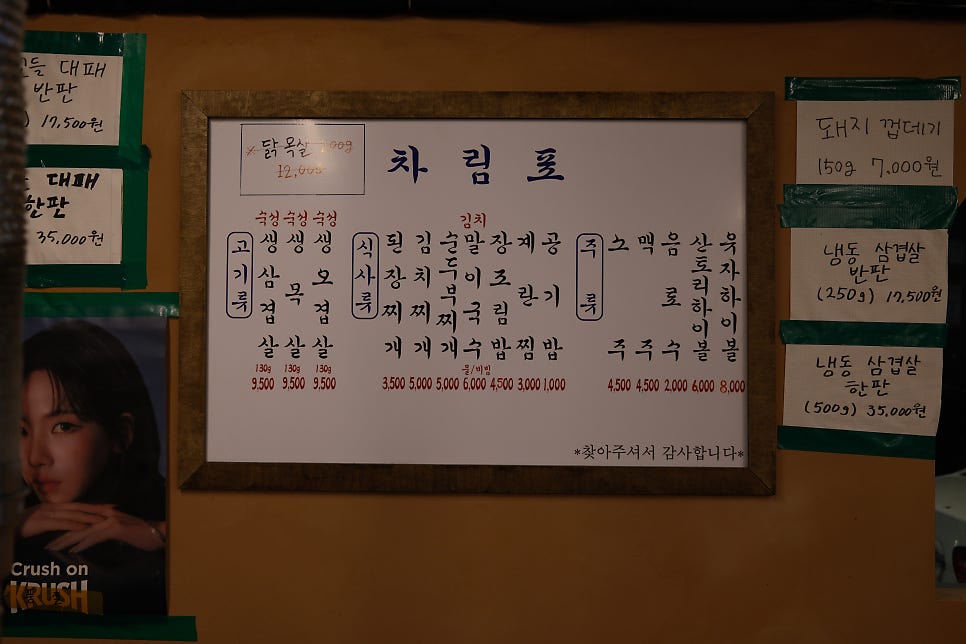 대패
반판
17,500원
대패
한판
35,000원
Crush on
KRUSH
※ 닭목살 200g
12,000
차림표
고기류
숙성 생삼겹살 130g 9,500
숙성 생목살 130g 9,500
숙성 생오겹살 130g 9,500
식사류
된장찌개 3,500
김치찌개 5,000
순두부찌개 5,000
김치말이국수 물/비빔 6,000
장조림밥 4,500
계란찜 3,000
공기밥 1,000
주류
소주 4,500
맥주 4,500
음료수 2,000
산토리하이볼 6,000
유자하이볼 8,000
*찾아주셔서 감사합니다*
돼지 껍데기
150g 7,000원
냉동 삼겹살
반판
(250g) 17,500원
냉동 삼겹살
한판
(500g) 35,000원